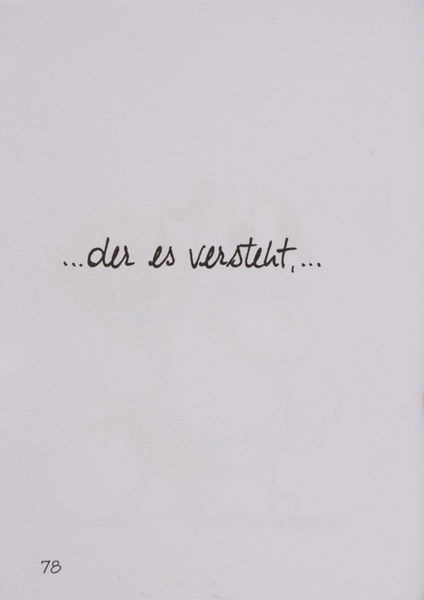 ...der es versteht,...
78